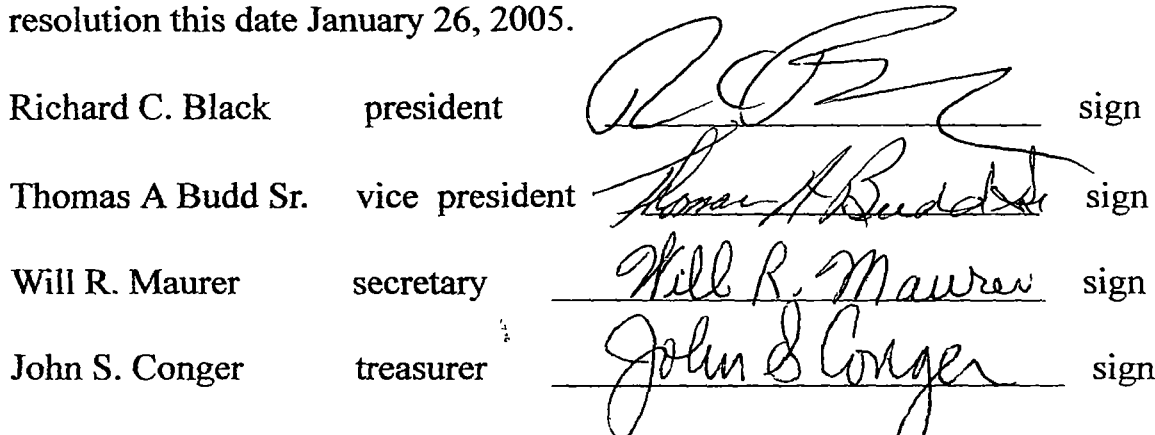 resolution this date January 26, 2005.
Richard C. Black president sign
Thomas A Budd Sr. vice president Thomas A Budd Sr sign
Will R. Maurer secretary Will R. Maurer sign
John S. Conger treasurer John S Conger sign